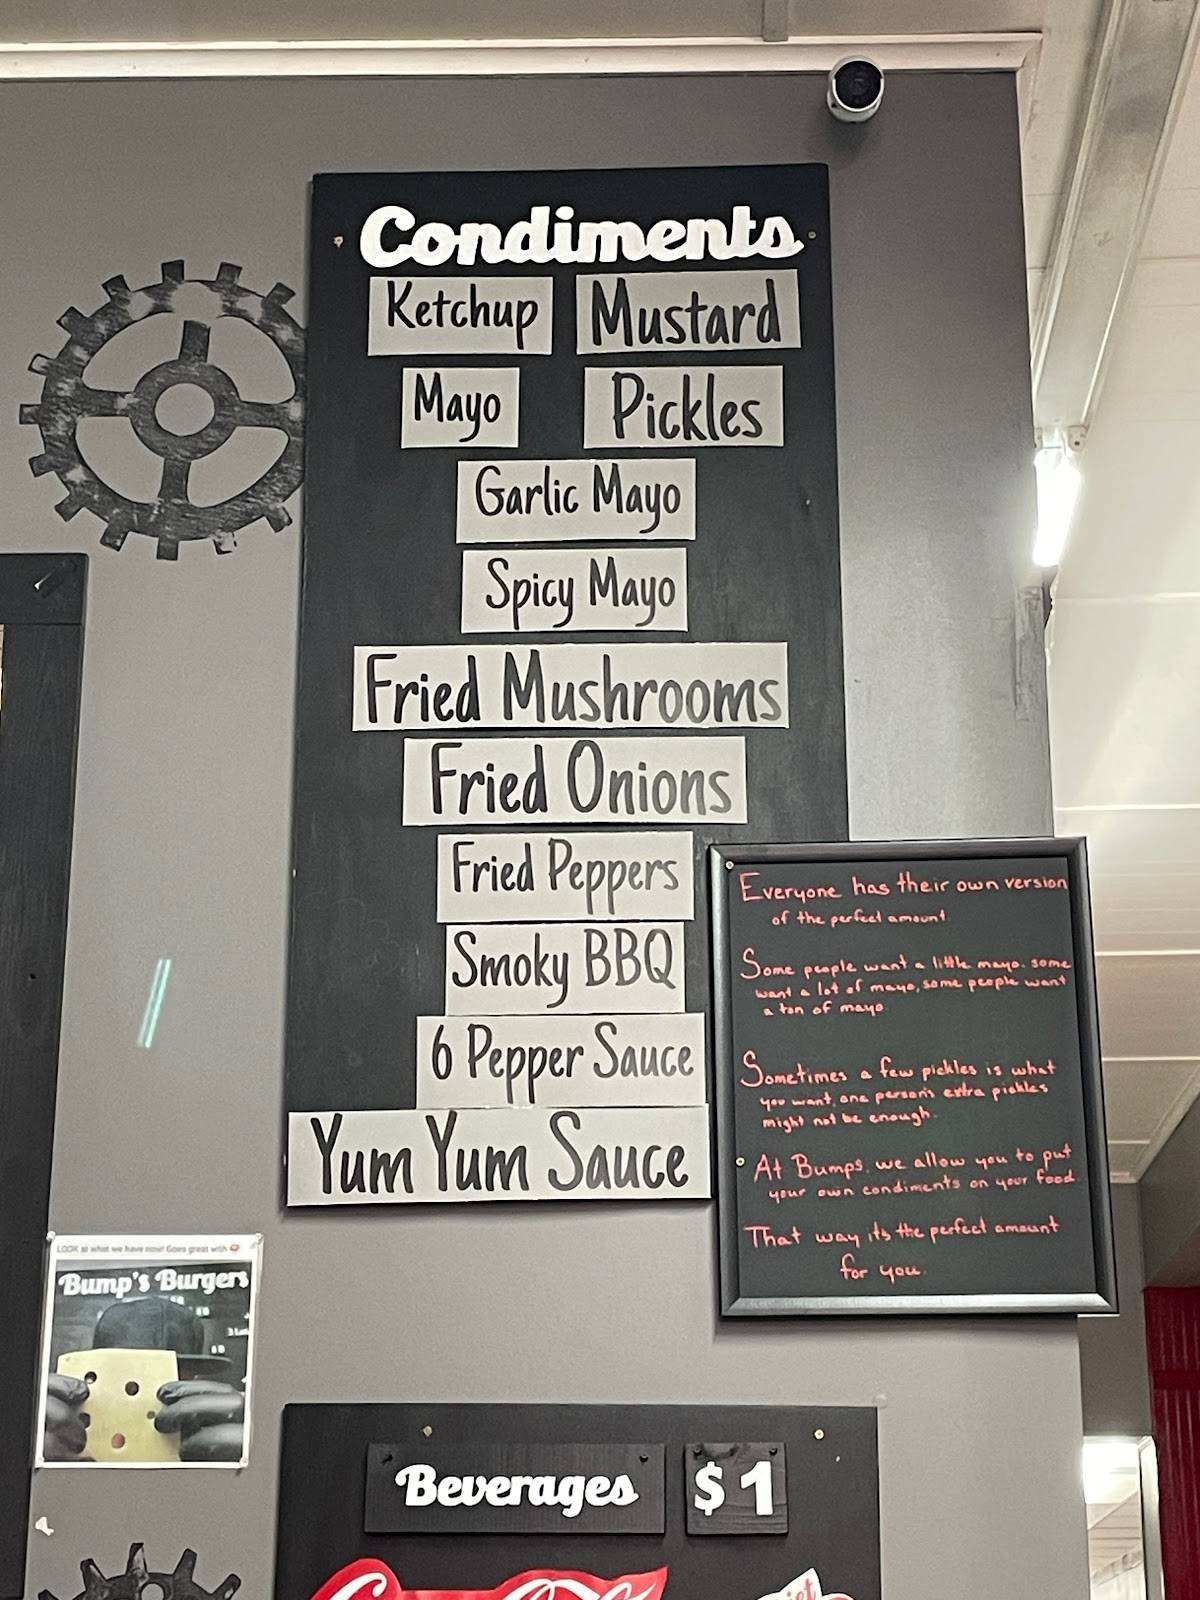 Condiments
Ketchup Mustard
Mayo Pickles
Garlic Mayo
Spicy Mayo
Fried Mushrooms
Fried Onions
Fried Peppers
Smoky BBQ
6 Pepper Sauce
Yum Yum Sauce
Everyone has their own version
of the perfect amount.
Some people want a little mayo. some
want a lot of mayo, some people want
a ton of mayo.
Sometimes a few pickles is what
you want, one person's extra pickles
might not be enough.
At Bumps, we allow you to put
your own condiments on your food.
That way its the perfect amount
for you.
LOOK at what we have now! Goes great with
Bump's Burgers
Beverages $1